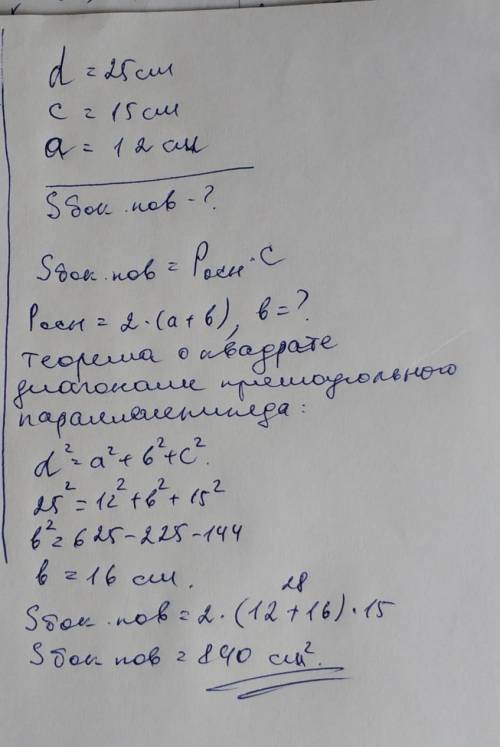 d = 25 см
c = 15 см
a = 12 см
Sбок.пов - ?
Sбок.пов = Pосн · C
Pосн = 2·(a+b), b = ?
Теорема о квадрате
диагонали прямоугольного
параллелепипеда:
d² = a² + b² + c².
25² = 12² + b² + 15²
b² = 625 - 225 - 144
b = 16 см.
28
Sбок.пов = 2·(12+16)·15
Sбок пов = 840 см².